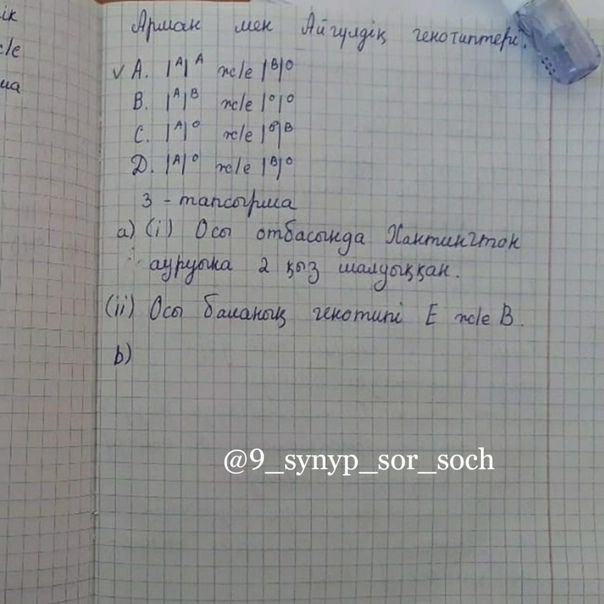 ік
Арман мен Айгүлдің генотиптері.
ж/е
v A. I^A I^A ж/е I^B I^O
B. I^A I^B ж/е I^O I^O
C. I^A I^O ж/е I^B I^B
D. I^A I^O ж/е I^B I^O
3 - тапсырма
a) (i) Осы отбасында Хантингтон
ауруына 2 қыз шалдыққан.
(ii) Осы баланың генотипі E ж/е B.
b)
@9_synyp_sor_soch